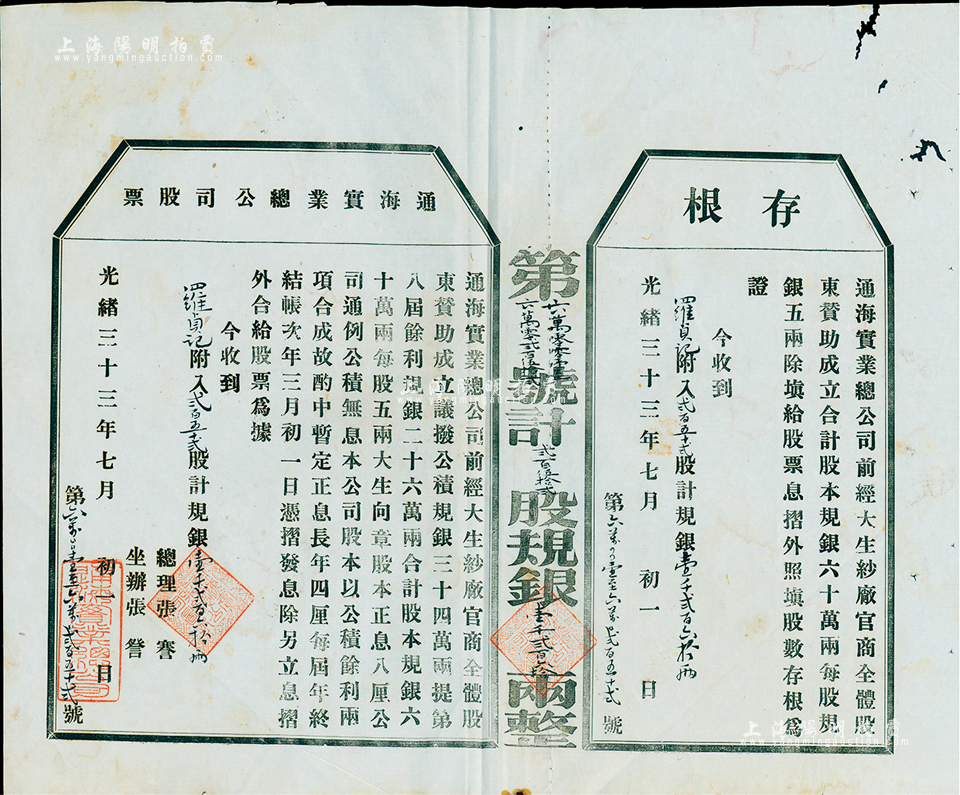 上海陽明拍賣
www.yangmingauction.com
存根
通海實業總公司前經大生紗廠官商全體股
東贊助成立合計股本規銀六十萬兩每股規
銀五兩除填給股票息摺外照填股數存根為
證
今收到
羅貞記附入弍百五十弍股計規銀壹千弍百六拾兩
光緒三十三年七月 初一 日
號
第 號計 弍百伍拾弍 股規銀 壹千弍百六拾 兩整
通海實業總公司股票
通海實業總公司前經大生紗廠官商全體股
東贊助成立議撥公積規銀三十四萬兩提第
八屆餘利規銀二十六萬兩合計股本規銀六
十萬兩每股五兩大生向章股本正息八厘公
司通例公積無息本公司股本以公積餘利兩
項合成故酌中暫定正息長年四厘每屆年終
結帳次年三月初一日憑摺發息除另立息摺
外合給股票為據
今收到
羅貞記附入弍百五十弍股計規銀壹千弍百六拾兩
總理張謇
坐辦張詧
光緒三十三年七月 初一 日
號
上海陽明拍賣
www.yangmingauction.com